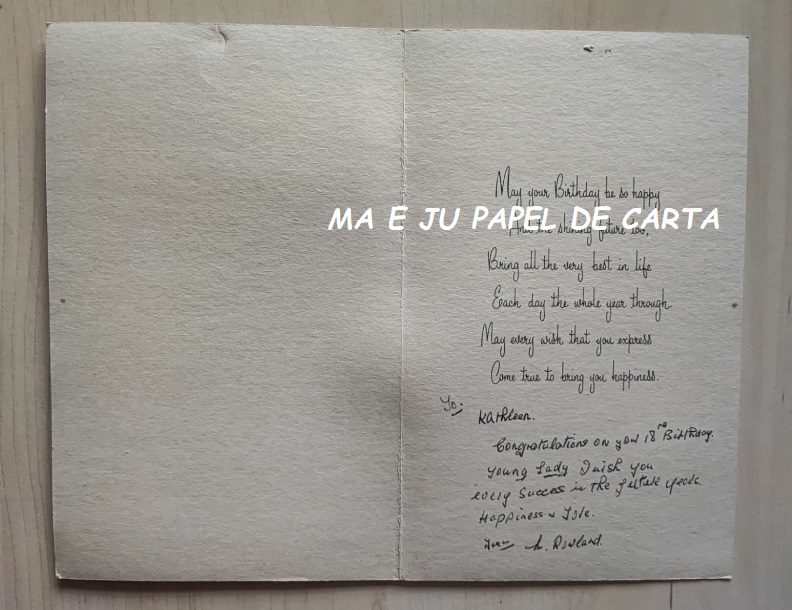 May your Birthday be so happy
MA E JU PAPEL DE CARTA
And the shining future too,
Bring all the very best in life
Each day the whole year through.
May every wish that you express
Come true to bring you happiness.
To:
Kathleen.
Congratulations on your 18th Birthday.
Young Lady I wish you
every Success in the future years.
Happiness & Love.
From